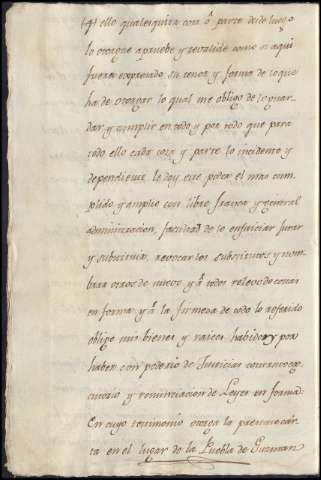 (4) ello qualesquiera cosa ô parte desde luego
lo otorgue apruebe y revalide como si aqui
fuera expresado, su tenor y forma de lo que
ha de otorgar lo qual me obligo de guar-
dar y cumplir en todo y por todo que para
todo ello cada cosa y parte lo incidente y
dependiente le doy este poder el mas cum-
plido y amplio con libre franca y general
administracion, facultad de enjuiciar jurar
y substituir, revocar los substitutos y nom-
brar otros de nuevo y â todos relevo de costas
en forma y â la firmeza de todo lo referido
obligo mis bienes y raices habidos y por
haber con poderio de Justicias
y renunciacion de Leyes en forma.
En cuyo testimonio otorga la presente cár-
ta en el lugar de la Puebla de Guzman